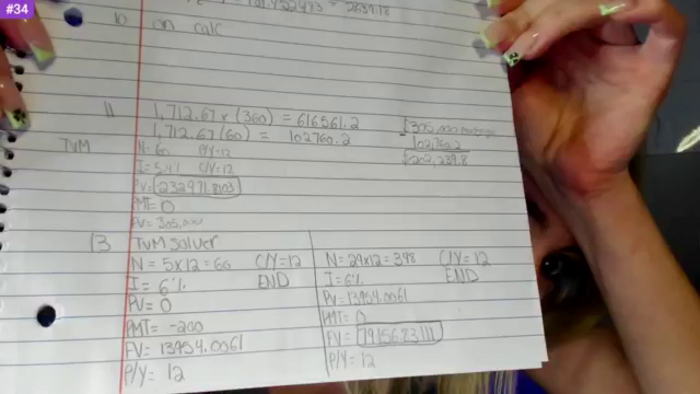 #34
= 2839.18
10 on calc
11 1,712.67 x (360) = 616561.2
1,712.67 (60) = 102760.2
305,000 mortgage
- 102760.2
202,239.8
TVM
N= 60 P/Y=12
I= 5.4% C/Y=12
PV= 232971.8103
PMT= 0
FV= 305,000
13 TVM Solver
N = 5x12 = 60 C/Y=12
I = 6%. END
PV= 0
PMT= -200
FV= 13954.0061
P/Y= 12
N= 29x12= 348 C/Y= 12
I= 6% END
PV= 13954.0061
PMT= 0
FV= 79156.83111
P/Y= 12